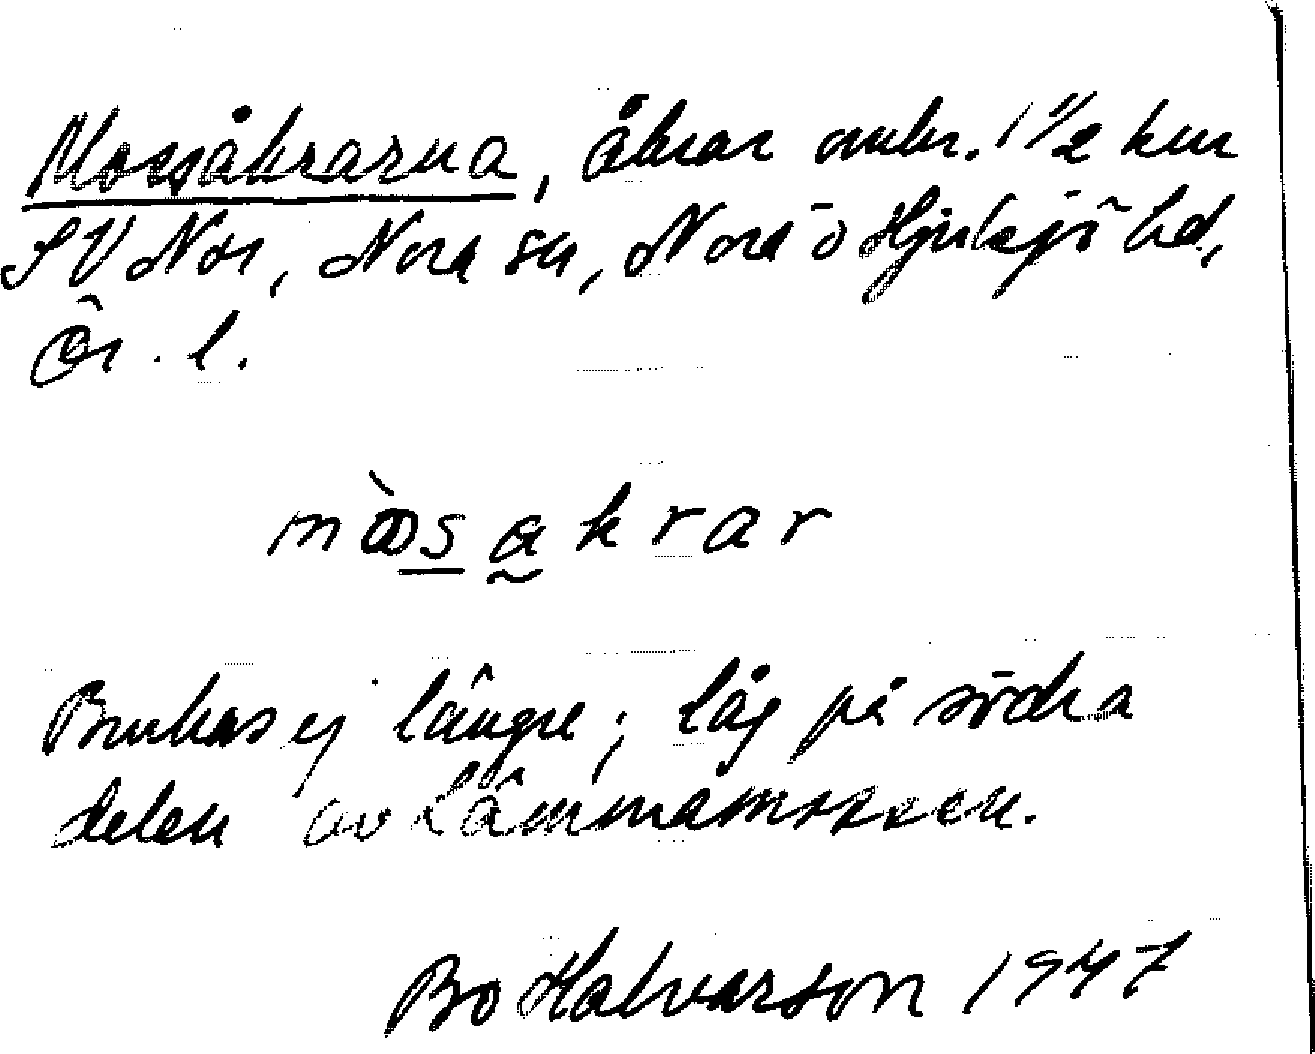 Mossåkrarna, åkrar omkr. 1 1/2 km
SV Nor, Nora sn, Nora o Hjulsjö hd,
Ör. l.
mòsakrar
Brukas ej längre; låg på södra
delen av Lämmåmossen.
Bo Halvarson 1947